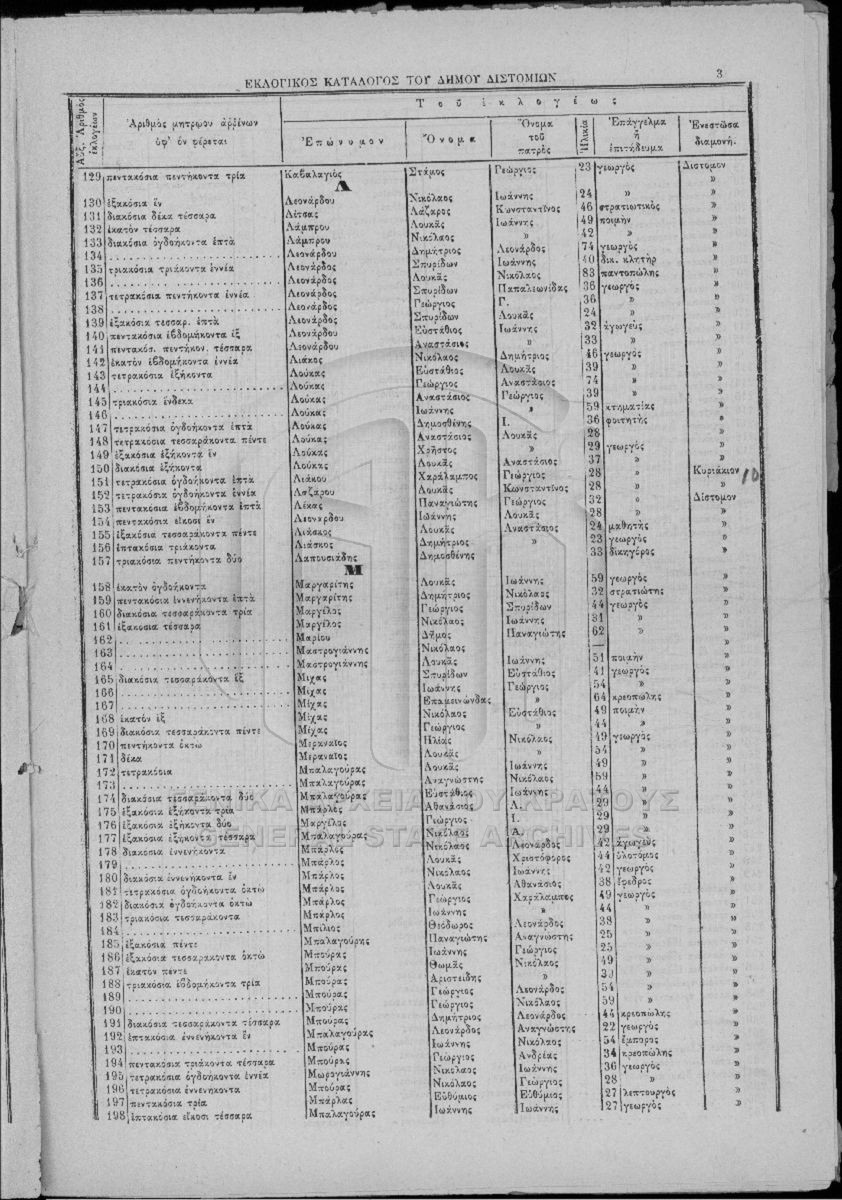 ΕΚΛΟΓΙΚΟΣ ΚΑΤΑΛΟΓΟΣ ΤΟΥ ΔΗΜΟΥ ΔΙΣΤΟΜΙΩΝ 3
Τοῦ ἐκλογέως
Αὔξ. Ἀριθμὸς ἐκλογέων Ἀριθμὸς μητρῴου ἀρρένων ὑφ' ὃν φέρεται Ἐπώνυμον Ὄνομα Ὄνομα τοῦ πατρὸς Ἡλικία Ἐπάγγελμα ἢ ἐπιτήδευμα Ἐνεστῶσα διαμονή.
129 πεντακόσια πεντήκοντα τρία Καβαλαγιὸς Στάμος Γεώργιος 23 γεωργὸς Δίστομον
Λ
130 ἑξακόσια ἓν Λεονάρδου Νικόλαος Ἰωάννης 24 » »
131 διακόσια δέκα τέσσαρα Λέτσας Λάζαρος Κωνσταντῖνος 46 στρατιωτικὸς »
132 ἑκατὸν τέσσαρα Λάμπρου Λουκᾶς Ἰωάννης 49 ποιμὴν »
133 διακόσια ὀγδοήκοντα ἑπτὰ Λάμπρου Νικόλαος » 42 » »
134 Λεονάρδου Δημήτριος Λεονάρδος 74 γεωργὸς »
135 τριακόσια τριάκοντα ἐννέα Λεονάρδος Σπυρίδων Ἰωάννης 40 δικ. κλητὴρ »
136 Λεονάρδος Λουκᾶς Νικόλαος 83 παντοπώλης »
137 τετρακόσια πεντήκοντα ἐννέα Λεονάρδος Σπυρίδων Παπαλεωνίδας 36 γεωργὸς »
138 Λεονάρδος Γεώργιος Γ. 36 » »
139 ἑξακόσια τεσσαρ. ἑπτὰ Λεονάρδος Σπυρίδων Λουκᾶς 24 » »
140 πεντακόσια ἑβδομήκοντα ἓξ Λεονάρδου Εὐστάθιος Ἰωάννης 32 ἀγωγεὺς »
141 πεντακόσ. πεντήκον. τέσσαρα Λεονάρδου Ἀναστάσιος » 33 » »
142 ἑκατὸν ἑβδομήκοντα ἐννέα Λιάκος Νικόλαος Δημήτριος 46 γεωργὸς »
143 τετρακόσια ἑξήκοντα Λούκας Εὐστάθιος Λουκᾶς 39 » »
144 Λούκας Γεώργιος Ἀναστάσιος 74 » »
145 τριακόσια ἕνδεκα Λούκας Ἀναστάσιος Γεώργιος 39 » »
146 Λούκας Ἰωάννης » 59 κτηματίας »
147 τετρακόσια ὀγδοήκοντα ἑπτὰ Λούκας Δημοσθένης Ι. 36 φοιτητὴς »
148 τετρακόσια τεσσαράκοντα πέντε Λούκας Ἀναστάσιος Λουκᾶς 28 »
149 ἑξακόσια ἑξήκοντα ἓν Λούκας Χρῆστος » 29 γεωργὸς »
150 διακόσια ἑξήκοντα Λούκας Λουκᾶς Ἀναστάσιος 37 » »
151 τετρακόσια ὀγδοήκοντα ἑπτὰ Λιάκου Χαράλαμπος Γεώργιος 28 » Κυριάκιον 10
152 τετρακόσια ὀγδοήκοντα ἐννέα Λαζάρου Λουκᾶς Κωνσταντῖνος 28 » »
153 πεντακόσια ἑβδομήκοντα ἑπτὰ Λέκας Παναγιώτης Γεώργιος 32 » Δίστομον
154 πεντακόσια εἴκοσι ἓν Λεοναρδου Ἰωάννης Λουκᾶς 28 » »
155 ἑξακόσια τεσσαράκοντα πέντε Λιάσκος Λουκᾶς Ἀναστάσιος 24 μαθητὴς »
156 ἑπτακόσια τριάκοντα Λιάσκος Δημήτριος » 23 γεωργὸς »
157 τριακόσια πεντήκοντα δύο Λαπουσιάδης Δημοσθένης 33 δικηγόρος »
Μ
158 ἑκατὸν ὀγδοήκοντα Μαργαρίτης Λουκᾶς Ἰωάννης 59 γεωργὸς »
159 πεντακόσια ἐννενήκοντα ἑπτὰ Μαργαρίτης Δημήτριος Νικόλαος 32 στρατιώτης »
160 διακόσια τεσσαράκοντα τρία Μαργέλος Γεώργιος Σπυρίδων 44 γεωργὸς »
161 ἑξακόσια τέσσαρα Μαργέλος Νικόλαος Ἰωάννης 31 » »
162 Μαρίου Δῆμος Παναγιώτης 62 » »
163 Μαστρογιάννης Νικόλαος — »
164 Μαστρογιάννης Λουκᾶς Ἰωάννης 51 ποιμὴν »
165 διακόσια τεσσαράκοντα ἓξ Μίχας Σπυρίδων Εὐστάθιος 41 γεωργὸς »
166 Μίχας Ἰωάννης Γεώργιος 54 » »
167 Μίχας Ἐπαμεινώνδας 64 κρεοπώλης »
168 ἑκατὸν ἓξ Μίχας Νικόλαος Εὐστάθιος 49 ποιμὴν »
169 διακόσια τεσσαράκοντα πέντε Μίχας Γεώργιος » 44 » »
170 πεντήκοντα ὀκτὼ Μεραναῖος Ἠλίας Νικόλαος 49 γεωργὸς »
171 δέκα Μεραναῖος Λουκᾶς » 54 » »
172 τετρακόσια Μπαλαγούρας Λουκᾶς Ἰωάννης 49 » »
173 Μπαλαγούρας Ἀναγνώστης Νικόλαος 59 » »
174 διακόσια τεσσαράκοντα δύο Μπαλαγούρας Εὐστάθιος Ἰωάννης 44 » »
175 ἑξακόσια ἑξήκοντα τρία Μπάρλος Ἀθανάσιος Λ. 29 » »
176 ἑξακόσια ἑξήκοντα δύο Μαργέλος Γεώργιος Ι. 29 » »
177 ἑξακόσια ἑξήκοντα τέσσαρα Μπαλαγούρας Νικόλαος Α. 29 » »
178 διακόσια ἐννενήκοντα Μπάρλος Νικόλαος Λεονάρδος 42 ἀγωγεὺς »
179 Μπάρλος Λουκᾶς Χριστόφορος 44 ὑλοτόμος »
180 διακόσια ἐννενήκοντα ἓν Μπάρλος Νικόλαος Ἰωάννης 42 γεωργὸς »
181 τετρακόσια ὀγδοήκοντα ὀκτὼ Μπάρλος Λουκᾶς Ἀθανάσιος 38 ἔφεδρος »
182 διακόσια ὀγδοήκοντα ὀκτὼ Μπάρλος Γεώργιος Χαράλαμπος 49 γεωργὸς »
183 τριακόσια τεσσαράκοντα Μπάρλος Ἰωάννης » 44 » »
184 Μπίλιος Θεόδωρος Λεονάρδος 38 » »
185 ἑξακόσια πέντε Μπαλαγούρης Παναγιώτης Ἀναγνώστης 25 » »
186 ἑξακόσια τεσσαράκοντα ὀκτὼ Μπούρας Ἰωάννης Γεώργιος 25 » »
187 ἑκατὸν πέντε Μπούρας Θωμᾶς Νικόλαος 49 » »
188 τριακόσια ἑβδομήκοντα τρία Μπούρας Ἀριστείδης » 39 » »
189 Μπούρας Γεώργιος Λεονάρδος 54 » »
190 Μπούρας Γεώργιος Νικόλαος 59 » »
191 διακόσια τεσσαράκοντα τέσσαρα Μπούρας Δημήτριος Λεονάρδος 44 κρεοπώλης »
192 ἑπτακόσια ἐννενήκοντα ἓν Μπαλαγούρας Λεονάρδος Ἀναγνώστης 22 γεωργὸς »
193 Μπούρας Ἰωάννης Νικόλαος 54 ἔμπορος »
194 πεντακόσια τριάκοντα τέσσαρα Μπούρας Γεώργιος Ἀνδρέας 34 κρεοπώλης »
195 τετρακόσια ὀγδοήκοντα ἐννέα Μωρογιάννης Νικόλαος Ἰωάννης 36 γεωργὸς »
196 τετρακόσια ἐννενήκοντα Μπούρας Νικόλαος Γεώργιος 28 » »
197 πεντακόσια τρία Μπάρλας Εὐθύμιος Εὐθύμιος 27 λεπτουργὸς »
198 ἑπτακόσια εἴκοσι τέσσαρα Μπαλαγούρας Ἰωάννης Ἰωάννης 27 γεωργὸς »